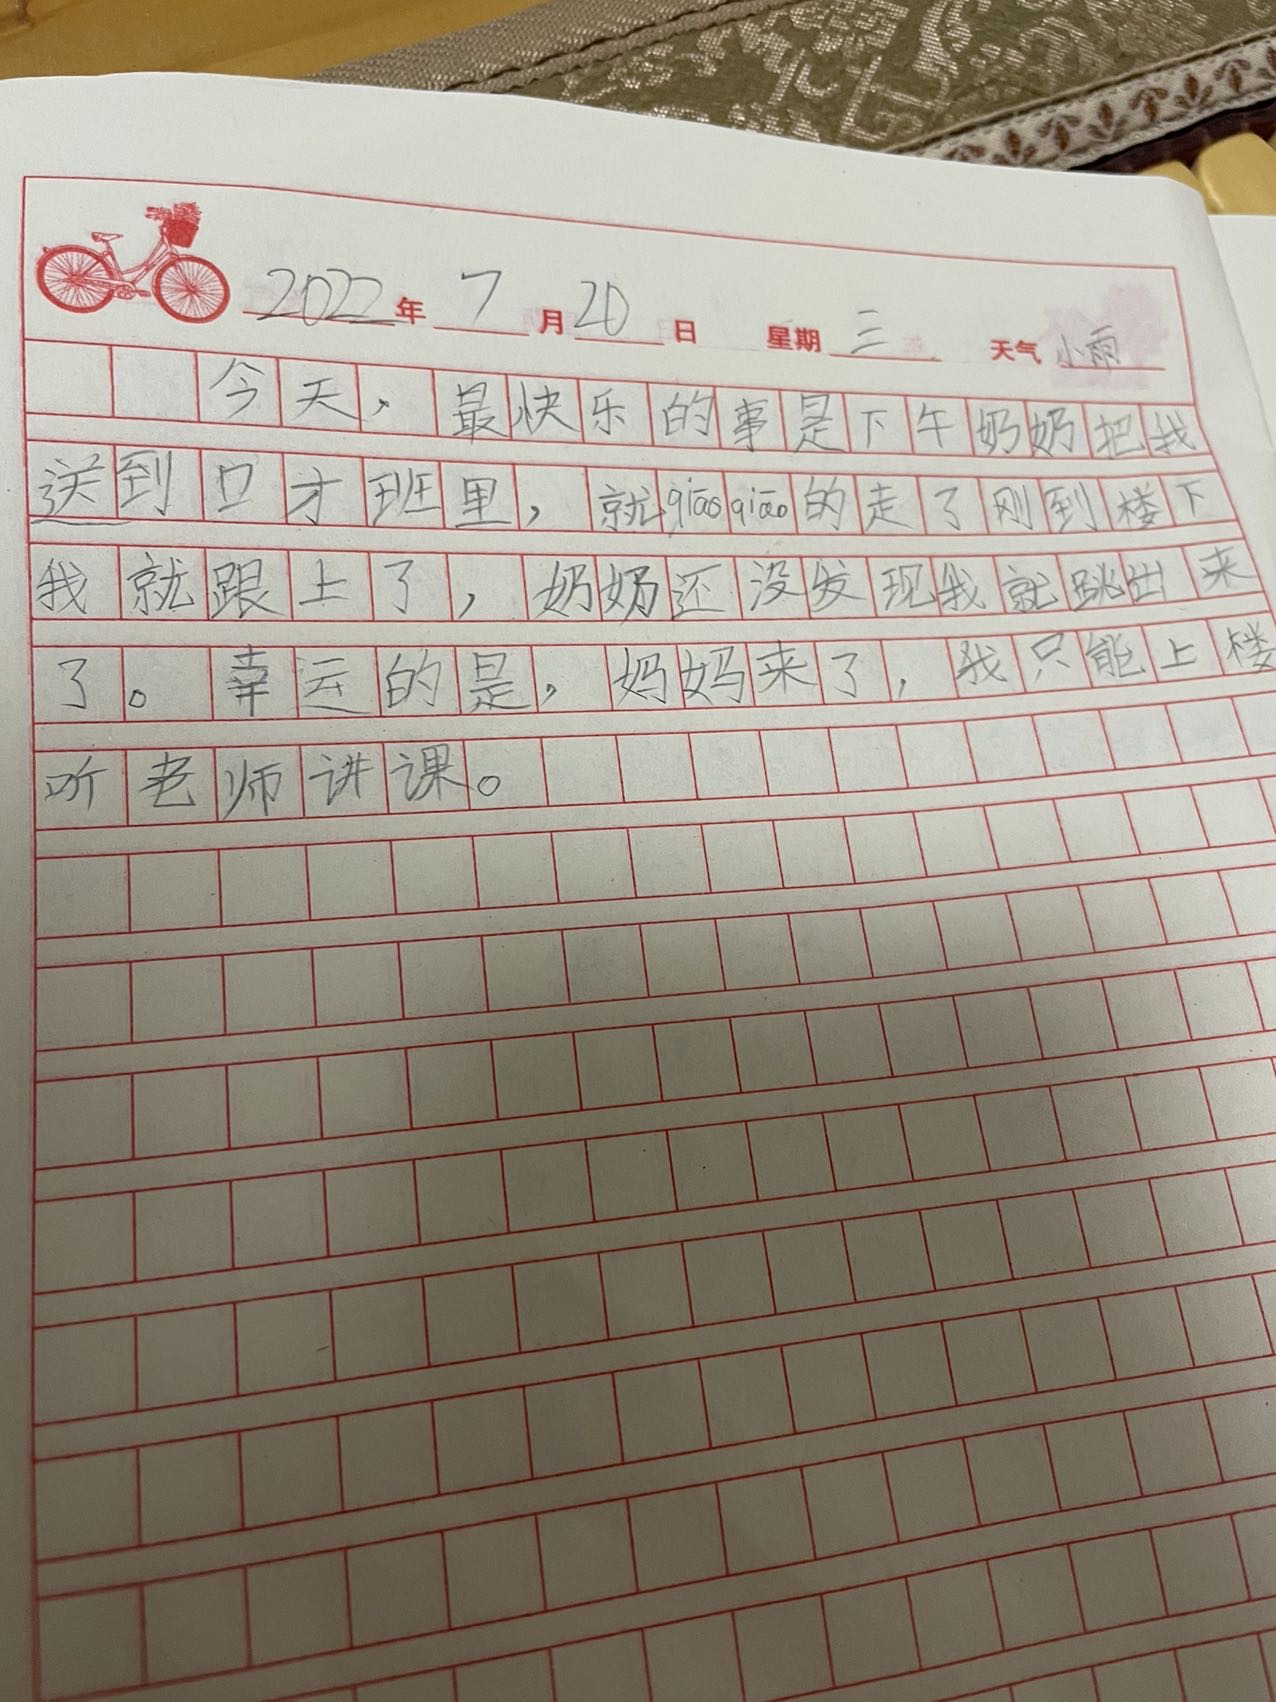 2022年 7月20日 星期三 天气小雨
今天，最快乐的事是下午奶奶把我
送到口才班里，就qiāoqiāo的走了刚到楼下
我就跟上了，奶奶还没发现我就跳出来
了。幸运的是，妈妈来了，我只能上楼
听老师讲课。